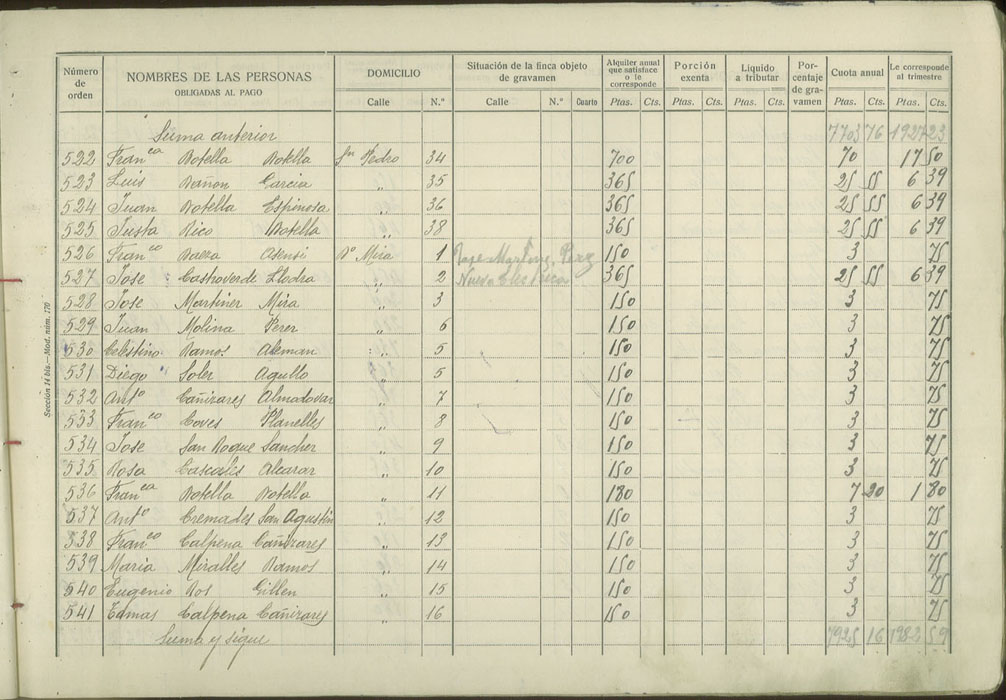 Número de orden NOMBRES DE LAS PERSONAS OBLIGADAS AL PAGO DOMICILIO Situación de la finca objeto de gravamen Alquiler anual que satisface o le corresponde Porción exenta Líquido a tributar Por-centaje de gra-vamen Cuota anual Le corresponde al trimestre
Calle N.º Calle N.º Cuarto Ptas. Cts. Ptas. Cts. Ptas. Cts. Ptas. Cts. Ptas. Cts.
Suma anterior 7703 76 1927 23
522 Fran.ca Botella Botella Sn Pedro 34 700 70 17 50
523 Luis Bañon Garcia " 35 365 25 55 6 39
524 Juan Botella Espinosa " 36 365 25 55 6 39
525 Justa Rico Botella " 38 365 25 55 6 39
526 Fran.co Baeza Asensi Bº Mira 1 150 3 75
527 Jose Castroverde Llodra " 2 Nueva Electrica 365 25 55 6 39
528 Jose Martinez Mira " 3 150 3 75
529 Juan Molina Perez " 6 150 3 75
530 Celestino Ramos Aleman " 5 150 3 75
531 Diego Soler Agullo " 5 150 3 75
532 Antº Cañizares Almadovar " 7 150 3 75
533 Fran.co Coves Planelles " 8 150 3 75
534 Jose San Roque Sanchez " 9 150 3 75
535 Rosa Cascales Alcaraz " 10 150 3 75
536 Fran.ca Botella Botella " 11 180 7 20 1 80
537 Antº Cremades San Agustin " 12 150 3 75
538 Fran.co Calpena Cañizares " 13 150 3 75
539 Maria Miralles Ramos " 14 150 3 75
540 Eugenio Ros Gillen " 15 150 3 75
541 Tomas Calpena Cañizares " 16 150 3 75
Suma y sigue 7925 16 1982 59
Sección 14 bis.—Mod. núm. 170